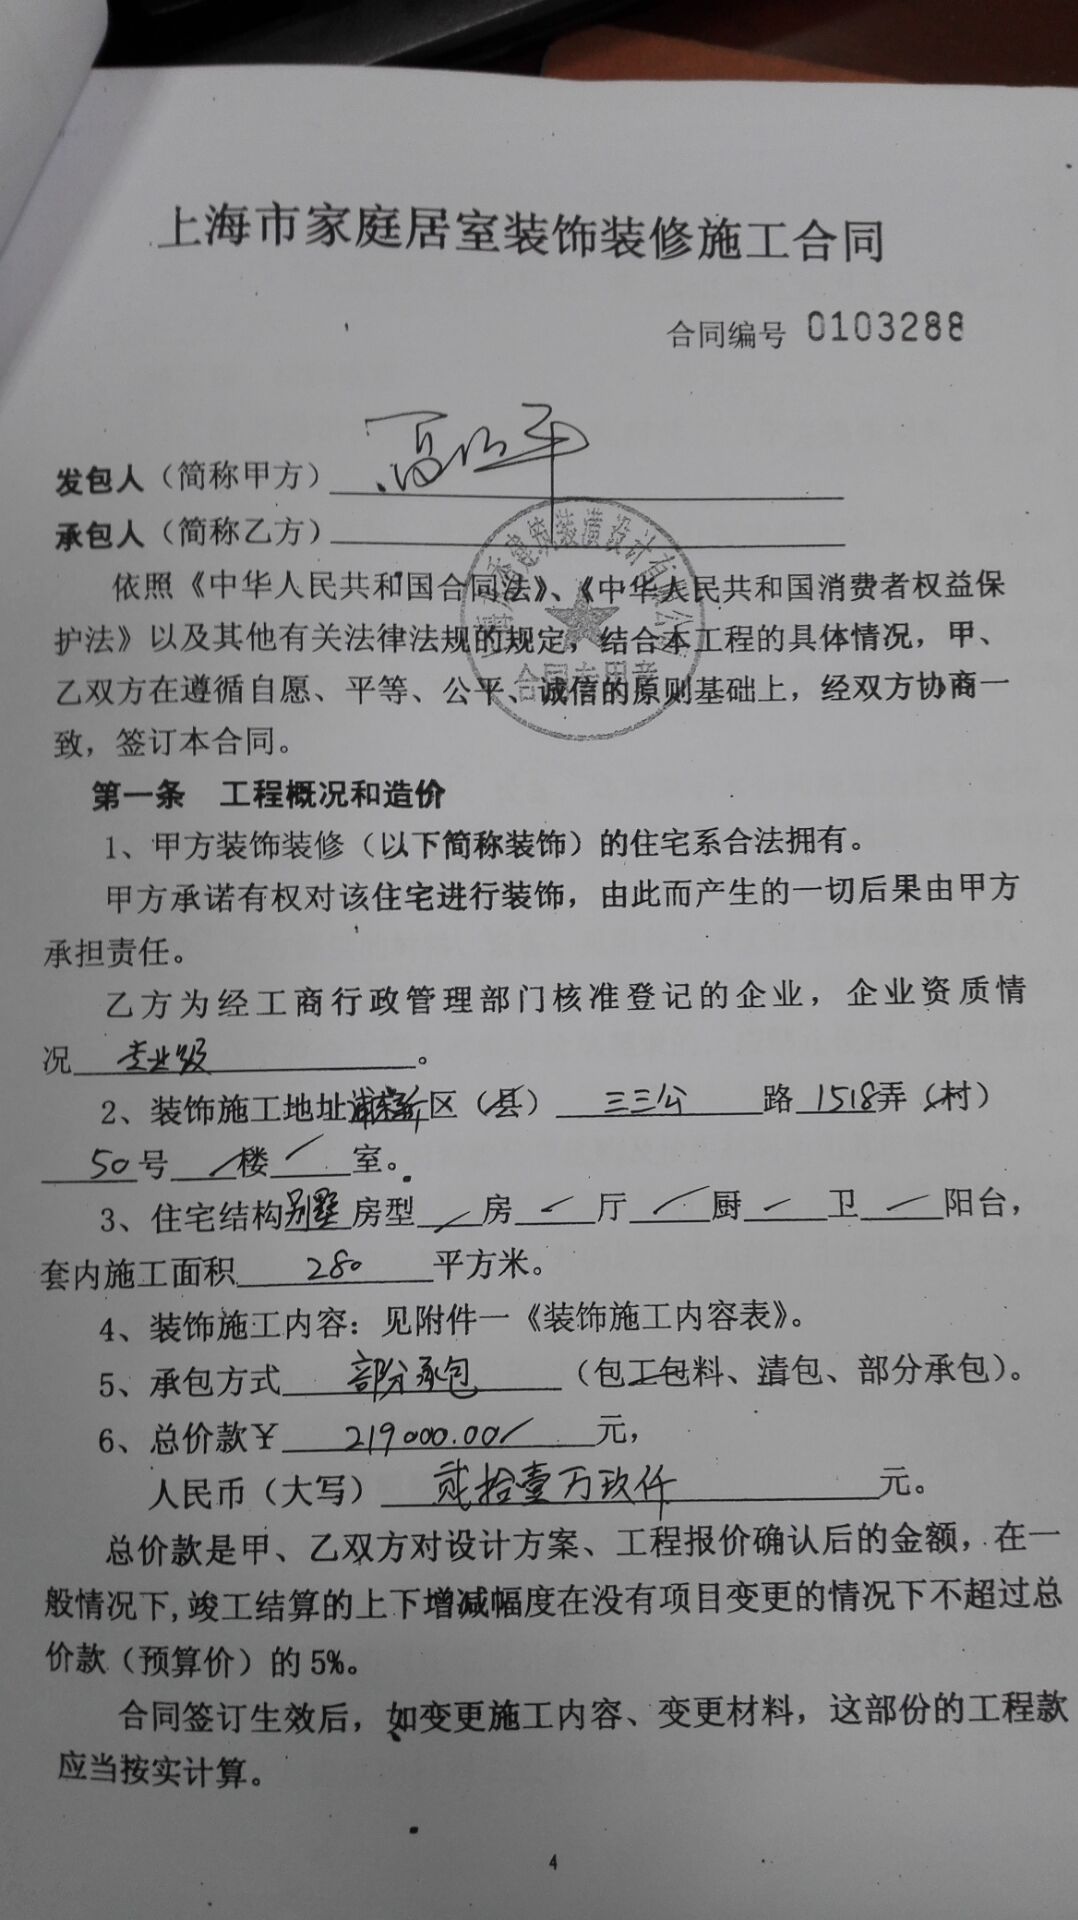 上海市家庭居室装饰装修施工合同
合同编号 0103288
发包人（简称甲方）
承包人（简称乙方）
建筑装潢设计有限公
合同专用章
依照《中华人民共和国合同法》、《中华人民共和国消费者权益保
护法》以及其他有关法律法规的规定，结合本工程的具体情况，甲、
乙双方在遵循自愿、平等、公平、诚信的原则基础上，经双方协商一
致，签订本合同。
第一条 工程概况和造价
1、甲方装饰装修（以下简称装饰）的住宅系合法拥有。
甲方承诺有权对该住宅进行装饰，由此而产生的一切后果由甲方
承担责任。
乙方为经工商行政管理部门核准登记的企业，企业资质情
况 专业级 。
2、装饰施工地址浦东新区（县） 三三公 路 1518弄（村）
50号 / 楼 / 室。
3、住宅结构别墅房型 / 房 / 厅 / 厨 / 卫 / 阳台，
套内施工面积 280 平方米。
4、装饰施工内容：见附件一《装饰施工内容表》。
5、承包方式 部分承包 （包工包料、清包、部分承包）。
6、总价款￥ 219000.00/ 元，
人民币（大写） 贰拾壹万玖仟 元。
总价款是甲、乙双方对设计方案、工程报价确认后的金额，在一
般情况下,竣工结算的上下增减幅度在没有项目变更的情况下不超过总
价款（预算价）的5%。
合同签订生效后，如变更施工内容、变更材料，这部份的工程款
应当按实计算。
4